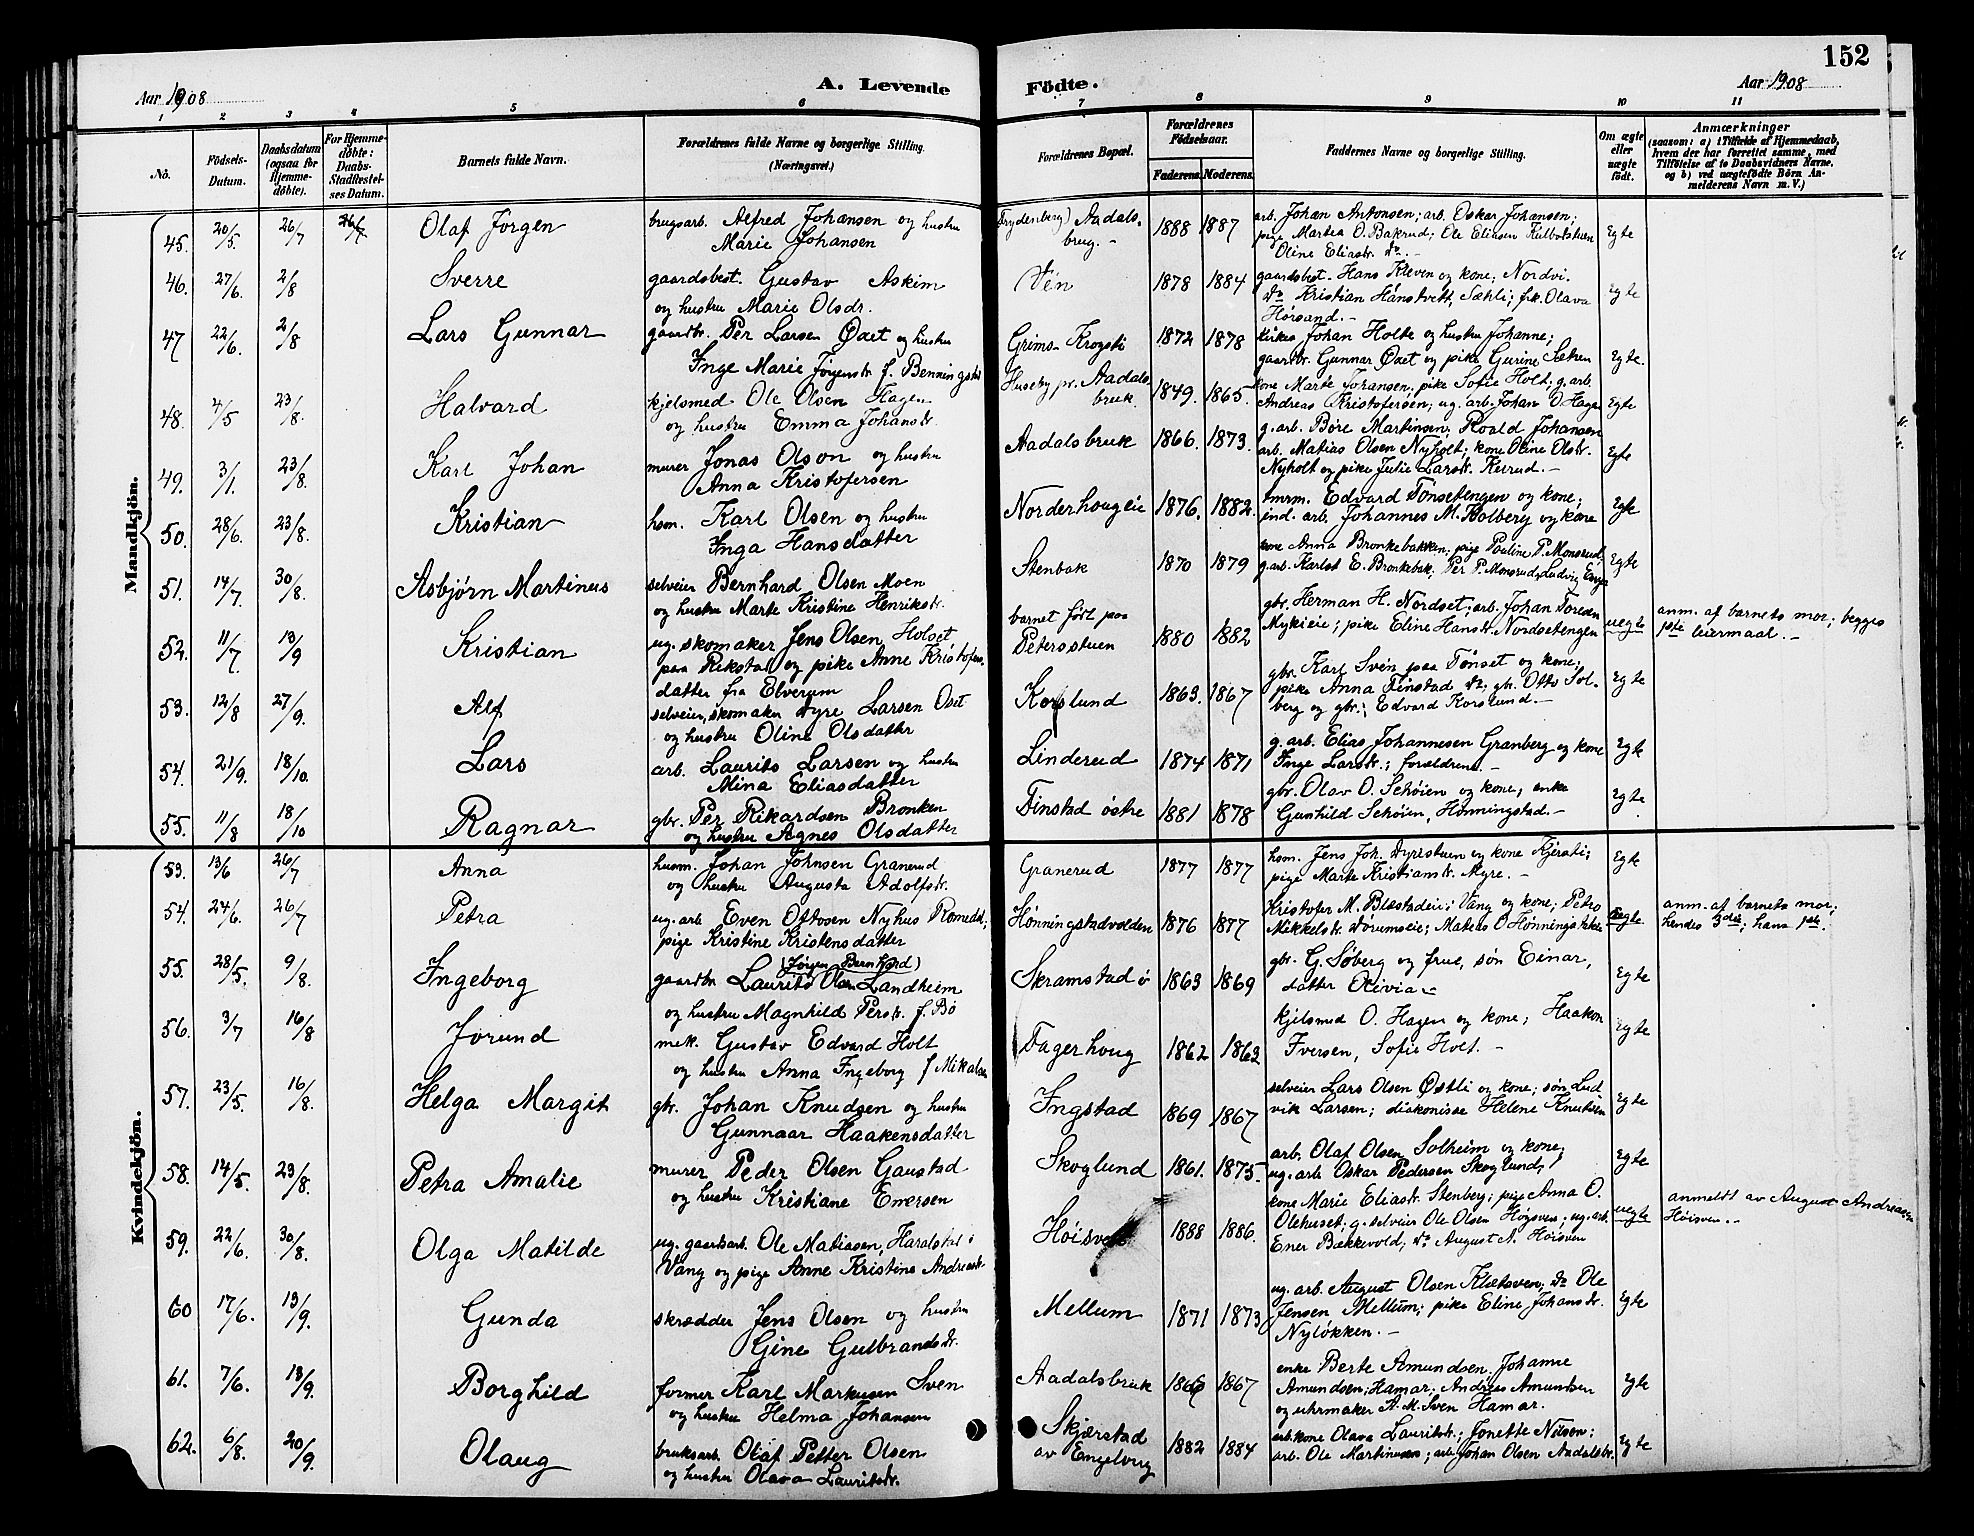 152
Aar 1908
A. Levende
Födte.
Aar 1908
1 2 3 4 5 6 7 8 9 10 11
No.
Födsels-Datum.
Daabsdatum (ogsaa for Hjemmedöbte).
For Hjemmedöbte: Daabs Stadfæstelses Datum.
Barnets fulde Navn.
Forældrenes fulde Navne og borgerlige Stilling.
(Næringsvei.)
Forældrenes Bopæl.
Forældrenes Födselsaar.
Faderens. Moderens.
Faddernes Navne og borgerlige Stilling.
Om ægte eller uægte födt.
Anmærkninger
(saasom: a) i Tilfælde af Hjemmedaab, hvem der har forrettet samme, med Tilföielse af to Daabsvidners Navne, og b) ved uægtefödte Börn Anmelderens Navn m. V.)
Mandkjön.
45. 20/5. 26/7 26/7 Olaf Jørgen
brugsarb. Alfred Johansen og hustru
Marie Johansen
(Frydenberg) Aadals-
brug. -
1888 1887
arb. Johan Antonsen; arb. Oskar Johansen;
pige Martea O. Bakrud; Ole Eliasen Kulbolstuen
Oline Eliastr. do. -
Egte
46. 27/6. 2/8 Sverre
gaardsbest. Gustav Askim
og hustru Marie Olsdr.
Vén
1878 1884
gaardsbest. Hans Kleven og kone, Nordvi.
do Kristian Hånstvett, Sæhli; frk. Olava
Hørsand. -
Egte
47 22/6. 2/8 Lars Gunnar
gaardbr. Per Larsen Oxet og hustru
Inge Marie Jørgenstr. f. Benningstad
Grims- Krogsti
1872 1878
kirkes. Johan Holte og hustru Johanne;
gaardbr. Gunnar Oxet og pike Gurine Sæten
Egte.
48. 4/5 23/8. Halvard
kjelsmed Ole Olsen Hagen
og hustru Emma Johanstr.
Huseby pr. Aadals
bruk.
1849. 1865.
kone Marte Johansen, pike Sofie Holt; g. arb.
Andreas Kristofersen; ug. arb. Johan O Hagen
Egte
49. 3/1. 23/8. Karl Johan
murer Jonas Olson og hustru
Anna Kristofersen
Aadalsbruk
1866. 1873.
g. arb. Børe Martinsen; Roald Johansen
arb. Matias Olsen Nyholt; kone Oline Olstr.
Nyholt og pike Julie Larstr. Keirud. -
Egte
50. 28/6. 23/8. Kristian
hsm. Karl Olsen og hustru
Inga Hansdatter
Norderhougeie
1876. 1882.
tmrm. Edvard Tonsetengen og kone;
ind. arb. Johannes M. Kolberg og kone
Egte
51. 14/7. 30/8. Asbjørn Martinus
selveier Bernhard Olsen Moen
og hustru Marte Kristine Henrikstr.
Stenbak
1870 1879
kone Anna Bronkebakken; pige Pauline P. Monsrud,
g. arb. Karlot E. Bronkebak; Per P. Monsrud, Ludvig Enge
Egte
52. 11/7 13/9 Kristian
ug. skomaker Jens Olsen, Holset
paa Rikstad og pike Anne Kristofers-
datter fra Elverum
barnet født paa
Petersstuen
1880 1882
gbr. Herman H. Nordset; arb. Johan Toresen
Mykieie; pike Eline Hanstr. Nordsetengen
uegte
anm. af barnets mor; begges
1ste leiermaal. -
53. 12/8 27/9. Alf
selveier, skomaker Dyre Larsen Oset
og hustru Oline Olsdatter
Korslund
1863. 1867
gbr. Karl Svén paa Tønset og kone;
pike Anna Finstad do; gbr. Otto Sol-
berg og gbr. Edvard Korslund. -
Egte
54. 21/9. 18/10. Lars
arb. Laurits Larsen og hustru
Mina Eliasdatter
Linderud
1874 1871
g. arb. Elias Johannesen Granberg og kone
Inge Larstr.; forældrene. -
Egte
55. 11/8 18/10 Ragnar
gbr. Per Rikardsen Bronken
og hustru Agnes Olsdatter
Finstad østre
1881 1878
gbr. Olav O. Schøien og kone, enke
Gunhild Schøien, Hønningstad. -
Egte.
Kvindekjön.
53. 13/6 26/7 Anna
husm. Johan Johnsen Granerud
og hustru Augusta Adolfstr.
Granerud
1877 1877
hsm. Jens Joh. Dyrestuen og kone Kjersti;
pige Marte Kristianstr. Myre. -
Egte
54. 24/6. 26/7 Petra
ug. arb. Even Ottosen Nyhus Romedal;
pige Kristine Kristensdatter
Hønningstadvolden
1876 1877
Kristofer M. Blæstadeie i Vang og kone; Petro
Mikkelstr. Dørumseie; Mateus O Hønningstadeie
Uegte.
anm. af barnets mor;
hendes 3die; hans 1ste.
55. 28/5. 9/8. Ingeborg
(Jørgen Bernhard)
gaardbr Laurits Olsen Landheim
og hustru Magnhild Perstr. f. Bø
Skramstad ø
1863 1869
gbr. G. Søberg og frue, søn Einar,
datter Olivia -
Egte
56. 3/7 16/8 Jorund
mek. Gustav Edvard Holt
og hustru Anna Ingeborg f Mikalsen
Fagerhoug
1862 1862
kjelsmed O. Hagen og kone; Haakon
Iversen, Sofie Holt. -
Egte
57. 23/5. 16/8. Helga Margit
gbr. Johan Knudsen og hustru
Gunnaar Haakensdatter
Ingstad
1869 1867
selveier Lars Olsen Østli og kone; søn Lud
vik Larsen; diakonisse Helene Knutsen
Egte
58. 14/5. 23/8. Petra Amalie
murer Peder Olsen Gaustad
og hustru Kristiane Enersen
Skoglund
1861. 1875.
arb. Olaf Olsen Solheim og kone;
ug. arb. Oskar Pedersen Skoglund,
kone Marie Eliastr. Stenberg; pige Anna O.
Egte
59. 22/6. 30/8. Olga Matilde
ug. gaardsarb. Ole Matiasen, Haralstad i
Vang og pige Anne Kristine Andreastr.
Høisveen
1888 1886.
Olehuset; g. selveier Ole Olsen Høgsveen; ug. arb.
Ener Bækkevold; do August A. Høisveen
uegte
anmeldt av August Andreasen
Høisveen. -
60 17/6. 13/9. Gunda
skrædder Jens Olsen og hustru
Gine Gulbrandsdr.
Mellum
1871 1873
ug. arb. August Olsen Kletsveen; do Ole
Jensen Mellum; pike Eline Johansdr.
Nyløkken. -
Egte
61. 7/6. 13/9. Borghild
former Karl Markusen Sven
og hustru Helma Johansen
Aadalsbruk
1866 1867
enke Berte Amundsen, Johanne
Amundsen, Hamar; Andreas Amundsen
og uhrmaker A. M. Sven Hamar.
Egte
62. 6/8. 20/9. Olaug
bruksarb. Olaf Petter Olsen
og hustru Olava Lauritstr.
Skjærstad
av Engelvug
1882 1884
arb. kone Olava Lauritstr.; Jonette Nilsen;
arb. Ole Martinsen; arb. Johan Olsen Aadalsbr.
Egte